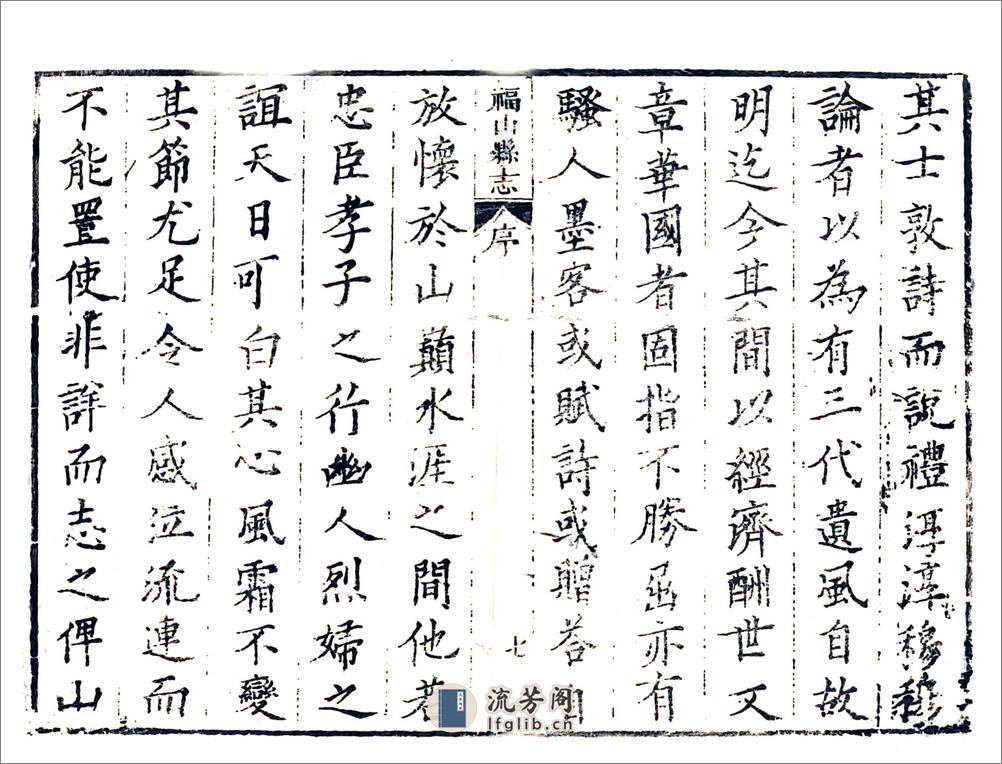 其士敦詩而說禮淳淳穆穆
論者以為有三代遺風自故
明迄今其間以經濟酬世文
章華國者固指不勝屈亦有
騷人墨客或賦詩或贈荅
福山縣志 序 七
放懷於山顛水涯之間他若
忠臣孝子之行幽人烈婦之
誼天日可白其心風霜不變
其節尤足令人感泣流連而
不能置使非詳而志之俾山
流芳阁
lfglib.cn